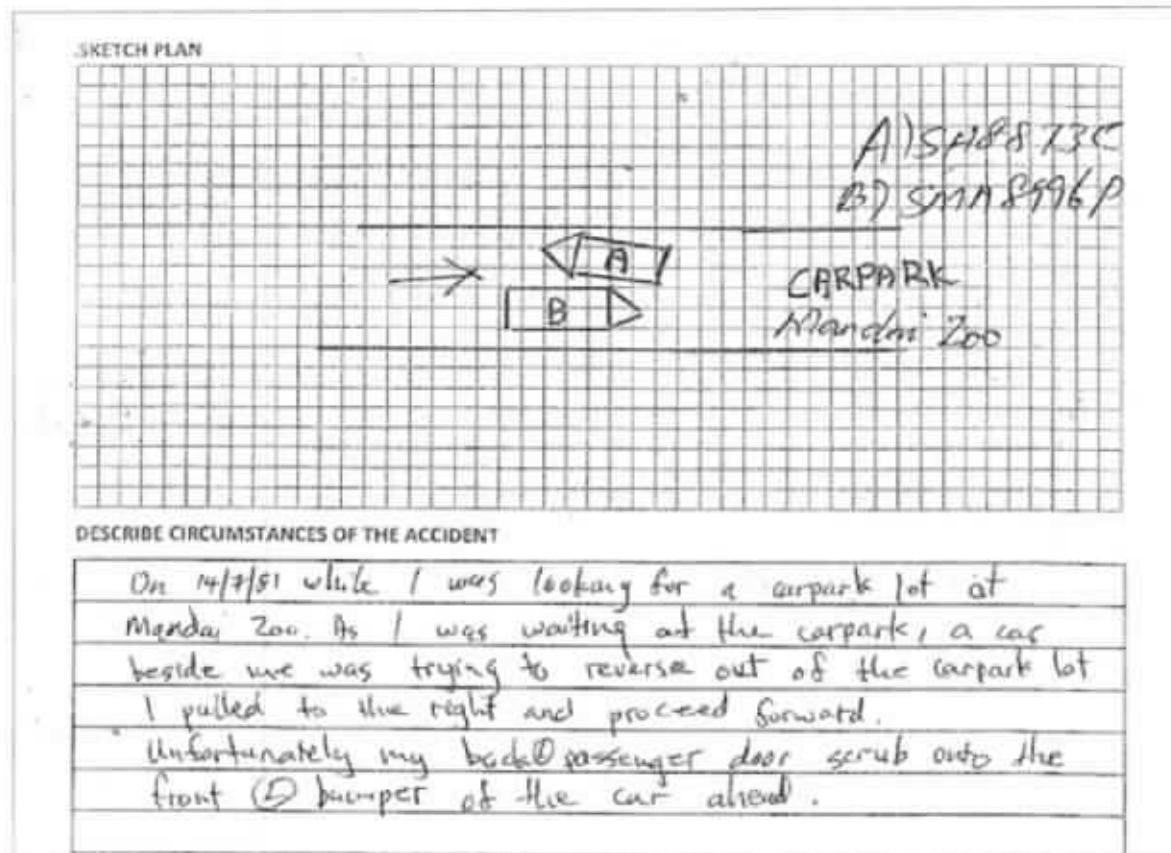 SKETCH PLAN
A) SH8873C
B) SMA8996P
A
B
CARPARK
Mandai Zoo
DESCRIBE CIRCUMSTANCES OF THE ACCIDENT
On 14/7/ while I was looking for a carpark lot at
Mandai Zoo. As I was waiting at the carpark, a car
beside me was trying to reverse out of the carpark lot
I pulled to the right and proceed forward.
Unfortunately my back passenger door scrub onto the
front bumper of the car ahead.